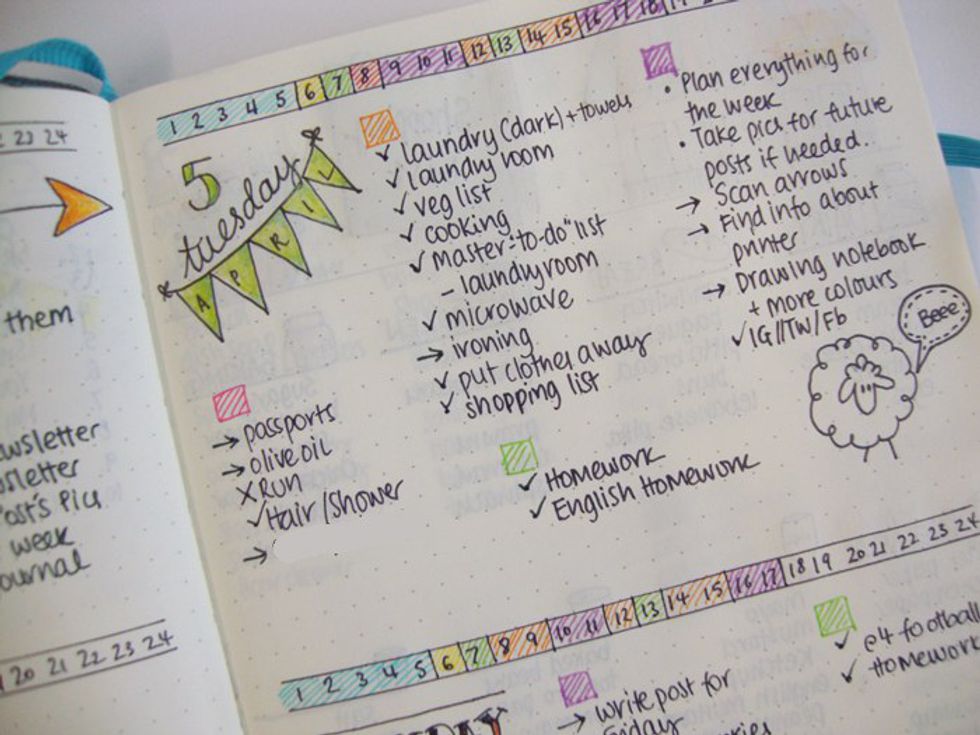 23 24
them
ewsletter
Post's Pics
week
20 21 22 23 24
1 2 3 4 5 6 7 8 9 10 11 12 13 14 15 16 17 18
5
tuesday
APRIL
passports
olive oil
Run
Hair/Shower
laundry (dark) + towels
laundry room
veg list
cooking
master "to-do" list
- laundry room
microwave
ironing
put clothes away
shopping list
Homework
English Homework
• Plan everything for
the week
• Take pics for future
posts if needed.
Scan arrows
Find info about
printer
Drawing notebook
+ more colours
IG//TW/Fb
Beee
1 2 3 4 5 6 7 8 9 10 11 12 13 14 15 16 17 18 19 20 21 22 23 24
write post for
Friday
e4 football
Homework